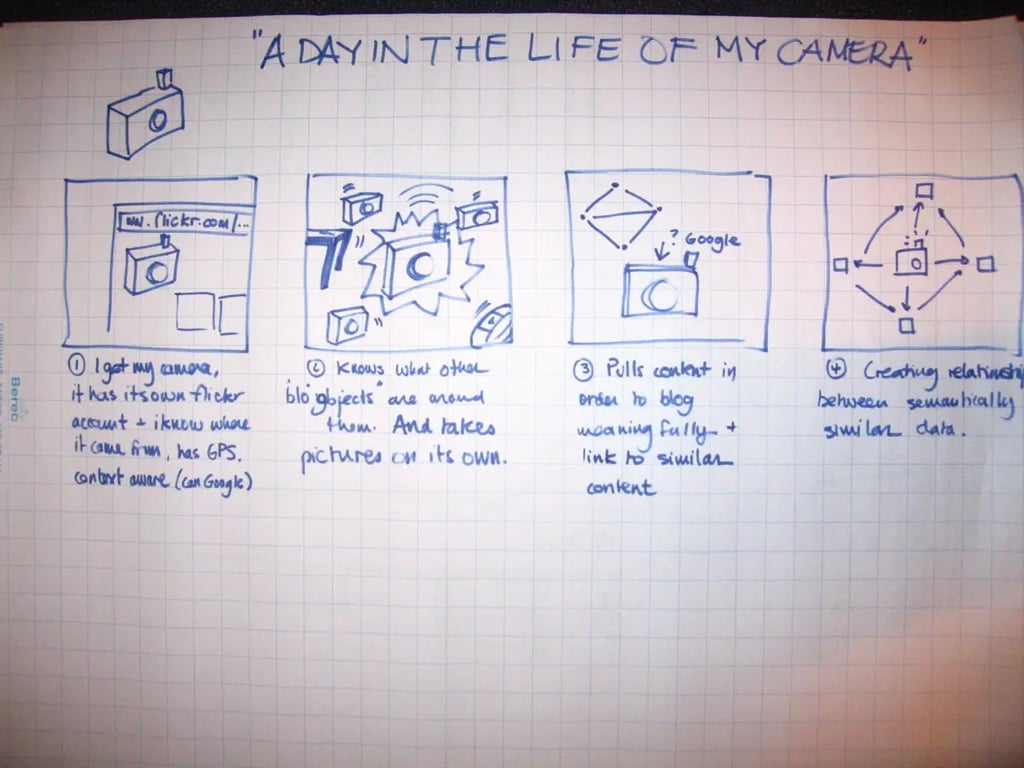 "A DAY IN THE LIFE OF MY CAMERA"
www.flickr.com/...
? Google
① I get my camera,
it has its own flickr
account + i know where
it came from, has GPS.
context aware (can Google)
② Knows what other
"blogobjects" are around
them. And takes
pictures on its own.
③ Pulls content in
order to blog
meaningfully +
link to similar
content
④ Creating relationship
between semantically
similar data.
Berec